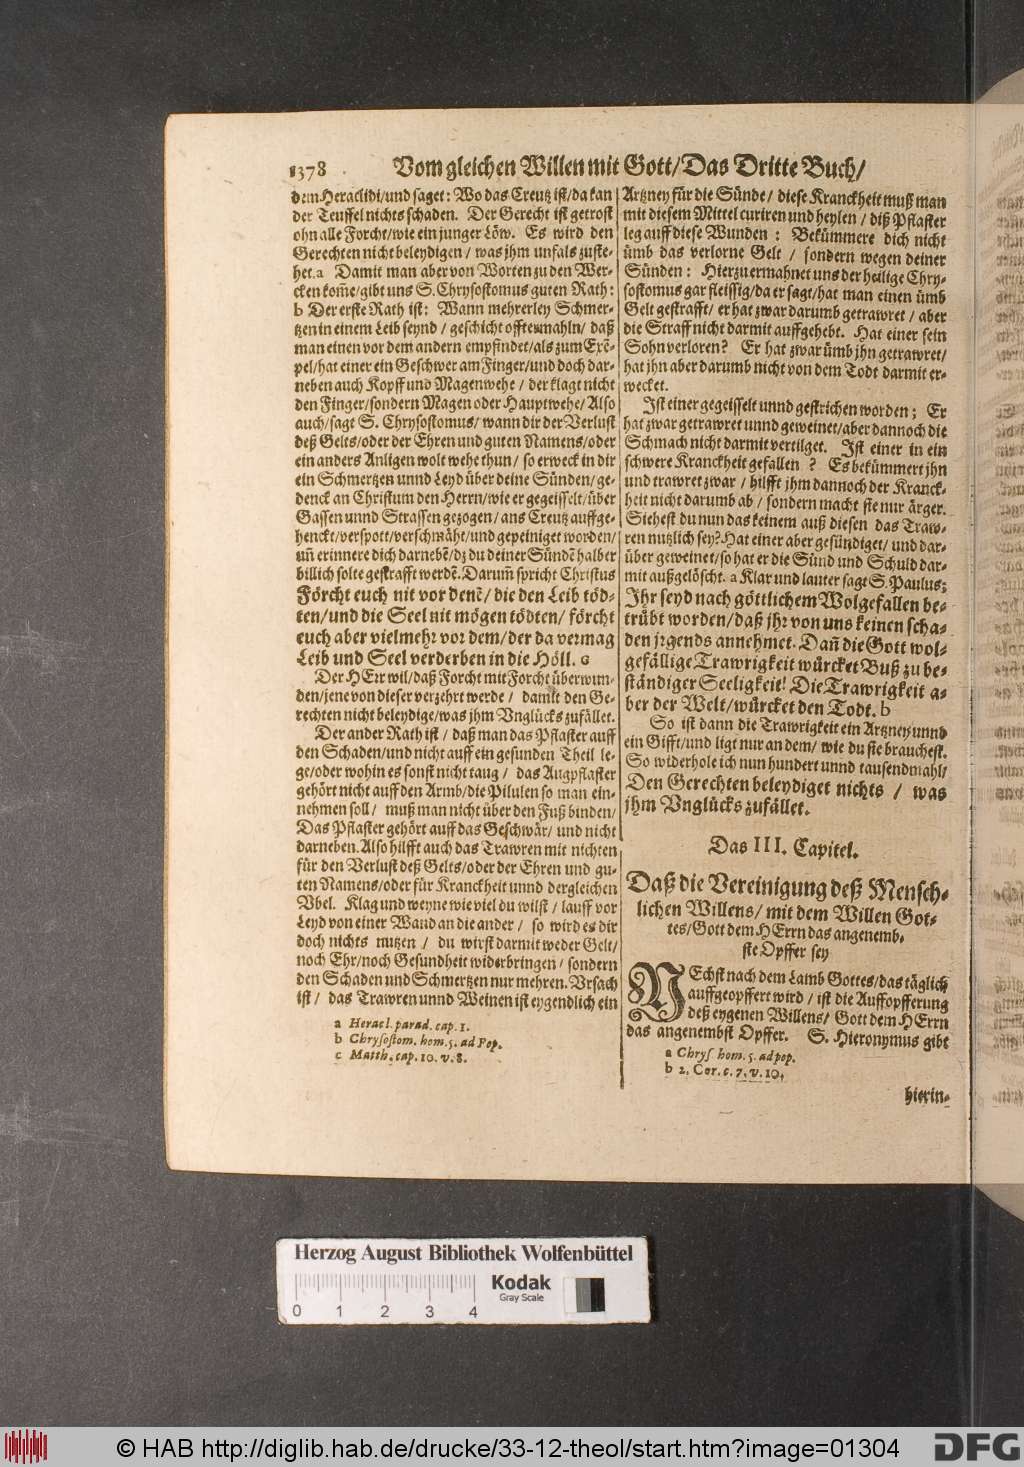 1378 Vom gleichen Willen mit Gott/Das Dritte Buch/
dem Heraclidi/und saget: Wo das Creutz ist/da kan
der Teuffel nichts schaden. Der Gerecht ist getrost
ohn alle Forcht/wie ein junger Löw. Es wird den
Gerechten nicht beleydigen/was jhm unfals zuste-
het.a Damit man aber von Worten zu den Wer-
cken kom̃e/gibt uns S. Chrysostomus guten Rath:
b Der erste Rath ist: Wann mehrerley Schmer-
tzen in einem Leib seynd/geschicht offtermahln/daß
man einen vor dem andern empfindet/als zum Exẽ-
pel/hat einer ein Geschwer am Finger/und doch dar-
neben auch Kopff und Magenwehe/der klagt nicht
den Finger/sondern Magen oder Hauptwehe/Also
auch/sagt S. Chrysostomus/wann dir der Verlust
deß Gelts/oder der Ehren und guten Namens/oder
ein anders Anligen wolt wehe thun/so erweck in dir
ein Schmertzen unnd Leyd über deine Sünden/ge-
denck an Christum den Herrn/wie er gegeisselt/über
Gassen unnd Strassen gezogen/ans Creutz auffge-
henckt/verspott/verschmäht/und gepeiniget worden/
uñ erinnere dich darnebẽ/dz du deiner Sündẽ halber
billich solte gestrafft werdẽ. Darum̃ spricht Christus
Förcht euch nit vor denẽ/die den Leib töd-
ten/und die Seel nit mögen tödten/förcht
euch aber vielmehr vor dem/der da vermag
Leib und Seel verderben in die Höll. c
Der HErr wil/daß Forcht mit Forcht überwun-
den/jene von dieser verzehrt werde/damit den Ge-
rechten nicht beleydige/was jhm Unglücks zufället.
Der ander Rath ist/daß man das Pflaster auff
den Schaden/und nicht auff ein gesunden Theil le-
ge/oder wohin es sonst nicht taug/das Augpflaster
gehört nicht auff den Armb/die Pilulen so man ein-
nehmen soll/muß man nicht über den Fuß binden/
Das Pflaster gehört auff das Geschwär/und nicht
darneben. Also hilfft auch das Trawren mit nichten
für den Verlust deß Gelts/oder der Ehren und gu-
ten Namens/oder für Kranckheit unnd dergleichen
Ubel. Klag und weyne wie viel du wilst/lauff vor
Leyd von einer Wand an die ander/so wird es dir
doch nichts nutzen/du wirst darmit weder Gelt/
noch Ehr/noch Gesundheit widerbringen/sondern
den Schaden und Schmertzen nur mehren. Ursach
ist/das Trawren unnd Weinen ist eygendlich ein
a Heracl. parad. cap. 1.
b Chrysostom. hom. 5. ad Pop.
c Matth. cap. 10. v. 8.
Artzney für die Sünde/diese Kranckheit muß man
mit diesem Mittel curiren und heylen/diß Pflaster
leg auff diese Wunden: Bekümmere dich nicht
ümb das verlorne Gelt/sondern wegen deiner
Sünden: Hierzu ermahnet uns der heilige Chry-
sostomus gar fleissig/da er sagt/hat man einen ümb
Gelt gestrafft/er hat zwar darumb getrawret/aber
die Straff nicht darmit auffgehebt. Hat einer sein
Sohn verloren? Er hat zwar ümb jhn getrawret/
hat jhn aber darumb nicht von dem Todt darmit er-
wecket.
Ist einer gegeisselt unnd gestrichen worden; Er
hat zwar getrawret unnd geweinet/aber dannoch die
Schmach nicht darmit vertilget. Ist einer in ein
schwere Kranckheit gefallen? Es bekümmert jhn
und trawret zwar/hilfft jhm dannoch der Kranck-
heit nicht darumb ab/sondern macht sie nur ärger.
Siehest du nun das keinem auß diesen das Traw-
ren nutzlich sey? Hat einer aber gesündiget/und dar-
über geweinet/so hat er die Sünd und Schuld dar-
mit außgelöscht. a Klar und lauter sagt S. Paulus:
Ihr seyd nach göttlichem Wolgefallen be-
trübt worden/daß jhr von uns keinen scha-
den jrgends annehmet. Dañ die Gott wol-
gefällige Trawrigkeit würcket Buß zu be-
ständiger Seeligkeit! Die Trawrigkeit a-
ber der Welt/würcket den Todt. b
So ist dann die Trawrigkeit ein Artzney unnd
ein Gifft/und ligt nur an dem/wie du sie brauchest.
So widerhole ich nun hundert unnd tausendmahl/
Den Gerechten beleydiget nichts/was
jhm Unglücks zufället.
Das III. Capitel.
Daß die Vereinigung deß Mensch-
lichen Willens/mit dem Willen Got-
tes/Gott dem HErrn das angenemb-
ste Opffer sey
NEchst nach dem Lamb Gottes/das täglich
auffgeopffert wird/ist die Auffopfferung
deß eygenen Willens/Gott dem HErrn
das angenembst Opffer. S. Hieronymus gibt
a Chrys hom. 5. ad pop.
b 2. Cor. c. 7. v. 10.
hierin-
Herzog August Bibliothek Wolfenbüttel
Kodak
Gray Scale
0 1 2 3 4
© HAB http://diglib.hab.de/drucke/33-12-theol/start.htm?image=01304
DFG